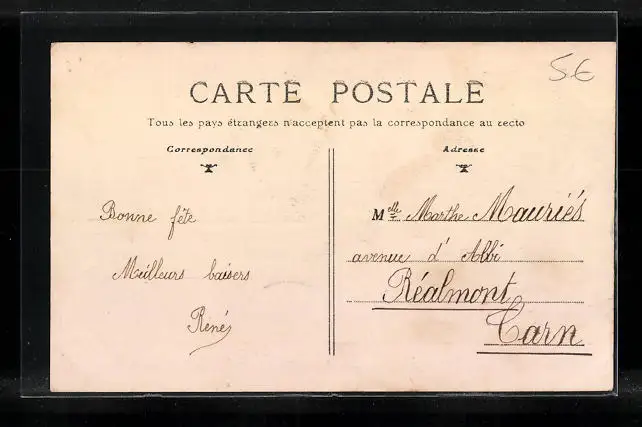 5€
CARTE POSTALE
Tous les pays étrangers n'acceptent pas la correspondance au recto
Correspondance
Bonne fête
Meilleurs baisers
René
Adresse
Mlle Marthe Mauriés
avenue d'Albi
Réalmont
Tarn